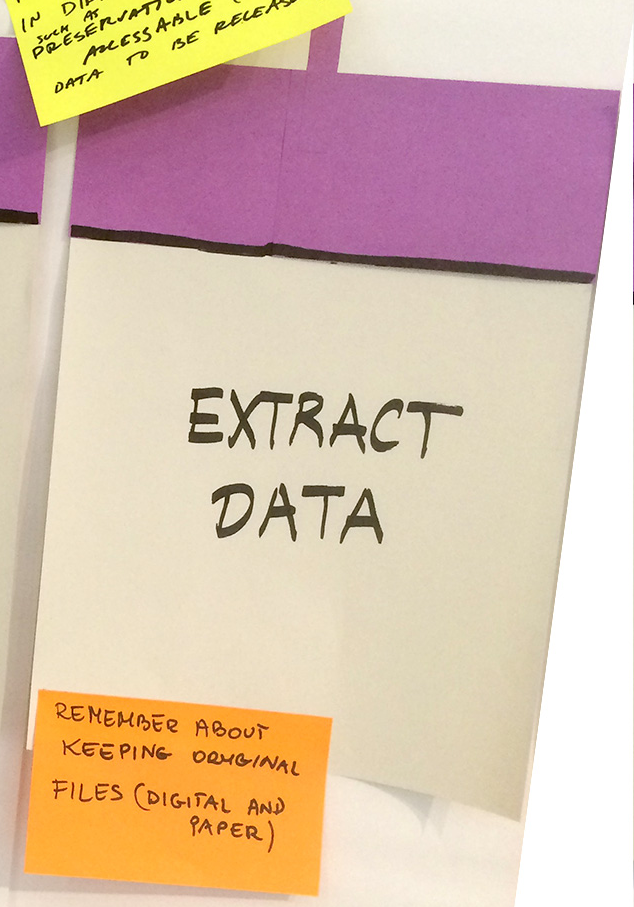 IN
SUCH AS
PRESERVATION
ACCESSABLE
DATA TO BE RELEASE
EXTRACT
DATA
REMEMBER ABOUT
KEEPING ORYGINAL
FILES (DIGITAL AND
PAPER)